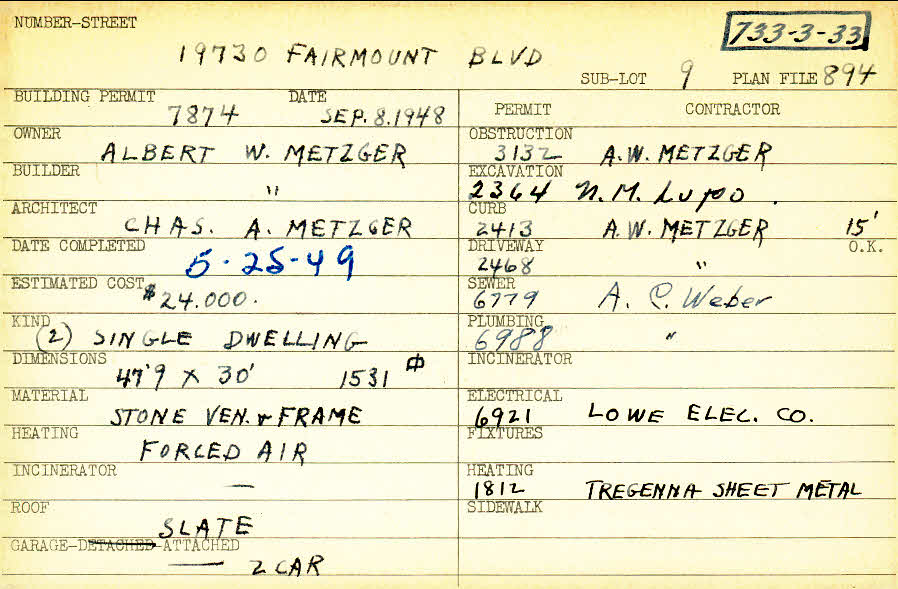 NUMBER-STREET
733-3-33
19730 FAIRMOUNT BLVD
SUB-LOT 9 PLAN FILE 894
BUILDING PERMIT DATE
7874 SEP. 8. 1948
OWNER
ALBERT W. METZGER
BUILDER
"
ARCHITECT
CHAS. A. METZGER
DATE COMPLETED
5-25-49
ESTIMATED COST
$24.000.
KIND
(2) SINGLE DWELLING
DIMENSIONS
47'9 X 30' 1531
MATERIAL
STONE VEN. & FRAME
HEATING
FORCED AIR
INCINERATOR
—
ROOF
SLATE
GARAGE-DETACHED-ATTACHED
— 2 CAR
PERMIT CONTRACTOR
OBSTRUCTION
3132 A.W. METZGER
EXCAVATION
2364 N. M. Lupo.
CURB
2413 A.W. METZGER 15'
DRIVEWAY O.K.
2468 "
SEWER
6779 A. C. Weber
PLUMBING
6988 "
INCINERATOR
ELECTRICAL
6921 LOWE ELEC. CO.
FIXTURES
HEATING
1812 TREGENNA SHEET METAL
SIDEWALK